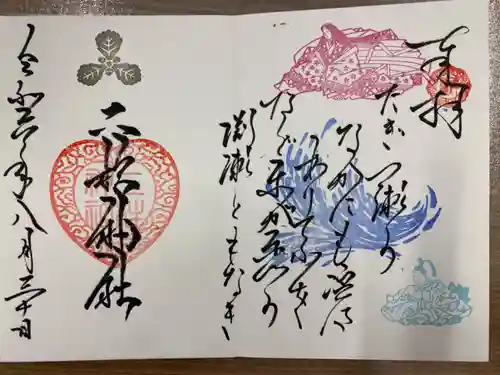 奉拝
たぎつ瀬の
なかにも淀は
ありてふを
などわが恋の
淵瀬ともなき
神社
令和六年八月三十日